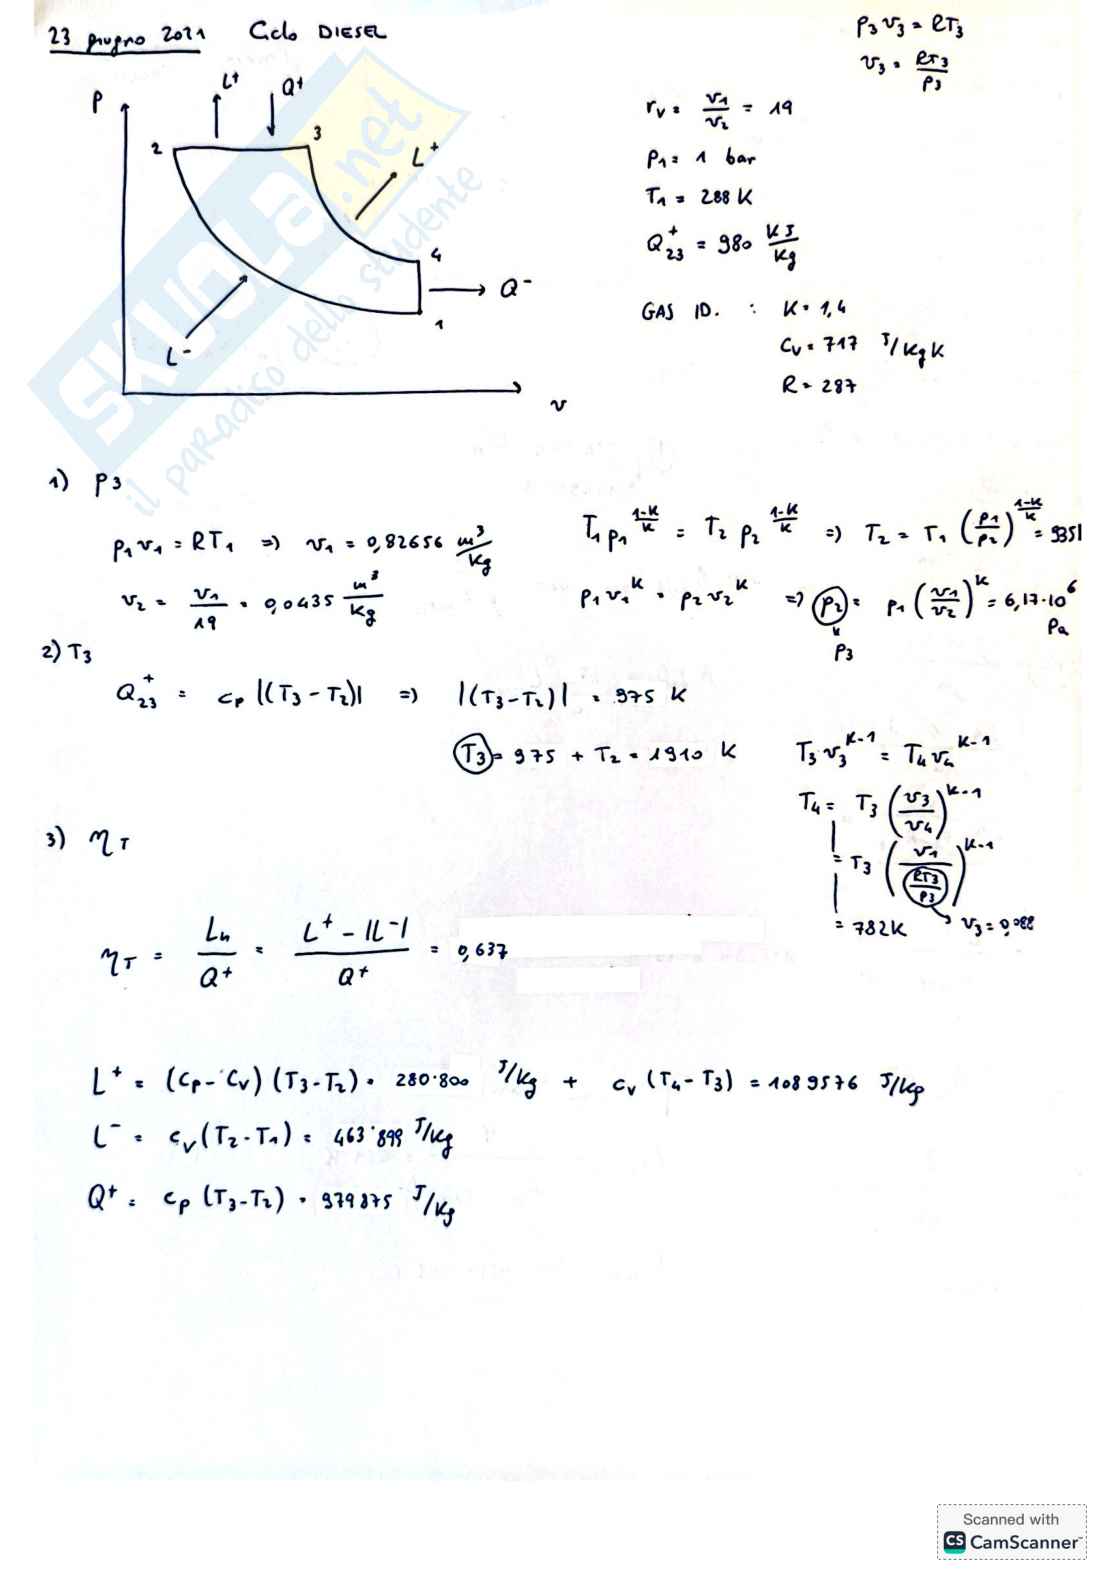 23 giugno 2021 Ciclo DIESEL
p3 v3 = RT3
v3 = RT3/p3
P
L+
Q+
2
3
L+
4
Q-
1
L-
v
rv = v1/v2 = 19
P1 = 1 bar
T1 = 288 K
Q23+ = 980 KJ/Kg
GAS ID. : K = 1,4
Cv = 717 J/KgK
R = 287
SKUOLA.net
il paradiso dello studente
1) P3
p1 v1 = RT1 => v1 = 0,82656 m³/Kg
v2 = v1/19 = 0,0435 m³/Kg
T1 p1^(1-K/K) = T2 p2^(1-K/K) => T2 = T1 (p1/p2)^(1-K/K) = 935
p1 v1^K = p2 v2^K => p2 = p1 (v1/v2)^K = 6,17·10^6 Pa
P3
2) T3
Q23+ = cp |(T3 - T2)| => |(T3 - T2)| = 975 K
T3 = 975 + T2 = 1910 K
T3 v3^K-1 = T4 v4^K-1
T4 = T3 (v3/v4)^K-1
= T3 (v1/(RT3/P3))^K-1
= 782K
v3 = 0,088
3) ηT
ηT = Lu/Q+ = L+ - |L-|/Q+ = 0,637
L+ = (cp - cv) (T3 - T2) = 280·800 J/kg + cv (T4 - T3) = 1089576 J/kg
L- = cv (T2 - T1) = 463·899 J/kg
Q+ = cp (T3 - T2) = 979875 J/kg
Scanned with
CS CamScanner